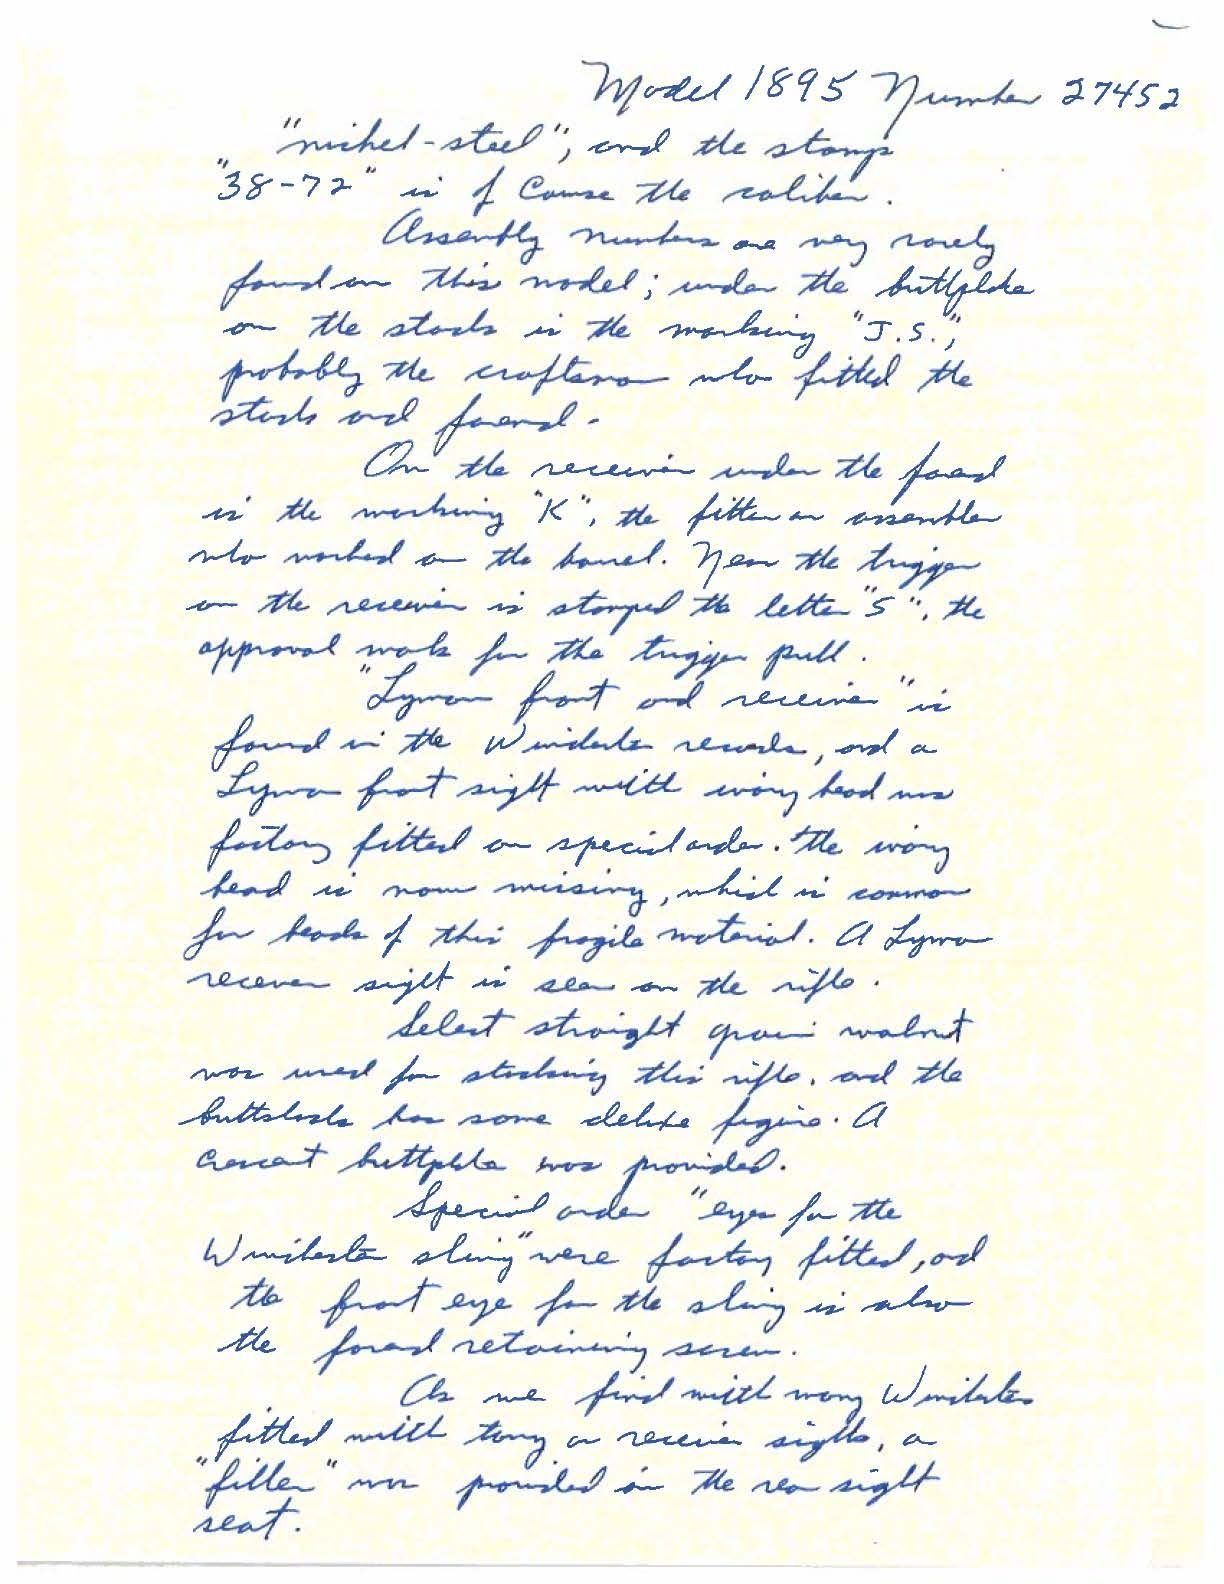 Model 1895 Number 27452
"nickel-steel", and the stamp
"38-72" is of course the caliber.
Assembly numbers are very rarely
found on this model; under the buttplate
on the stock is the marking "J.S.",
probably the craftsman who fitted the
stock and forend.
On the receiver under the forend
is the marking "K", the fitter or assembler
who worked on the barrel. Near the trigger
on the receiver is stamped the letter "S", the
approval mark for the trigger pull.
"Lyman front and receiver" is
found in the Winchester records, and a
Lyman front sight with ivory bead was
factory fitted on special order. The ivory
bead is now missing, which is common
for beads of this fragile material. A Lyman
receiver sight is seen on the rifle.
Select straight grain walnut
was used for stocking this rifle, and the
buttstock has some deluxe figure. A
crescent buttplate was provided.
Special order "eyes for the
Winchester sling" were factory fitted, and
the front eye for the sling is also
the forend retaining screw.
As we find with many Winchesters
fitted with tang or receiver sights, a
"filler" was provided in the rear sight
seat.